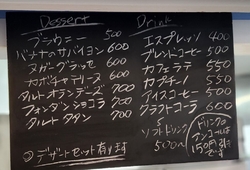 Dessert
ブラウニー 500
バナナのサバイヨン 600
ヌガーグラッセ 600
カボチャテリーヌ 600
タルトオランデーズ 700
フォンダンショコラ 700
タルトタタン 700
◎デザートセット有ります
Drink
エスプレッソ 400
ブレンドコーヒー 500
カフェラテ 550
カプチーノ 550
アイスコーヒー 500
クラフトコーラ 600
ソフトドリンク
500〜
ドリンクの
アンコールは
150円引き
です